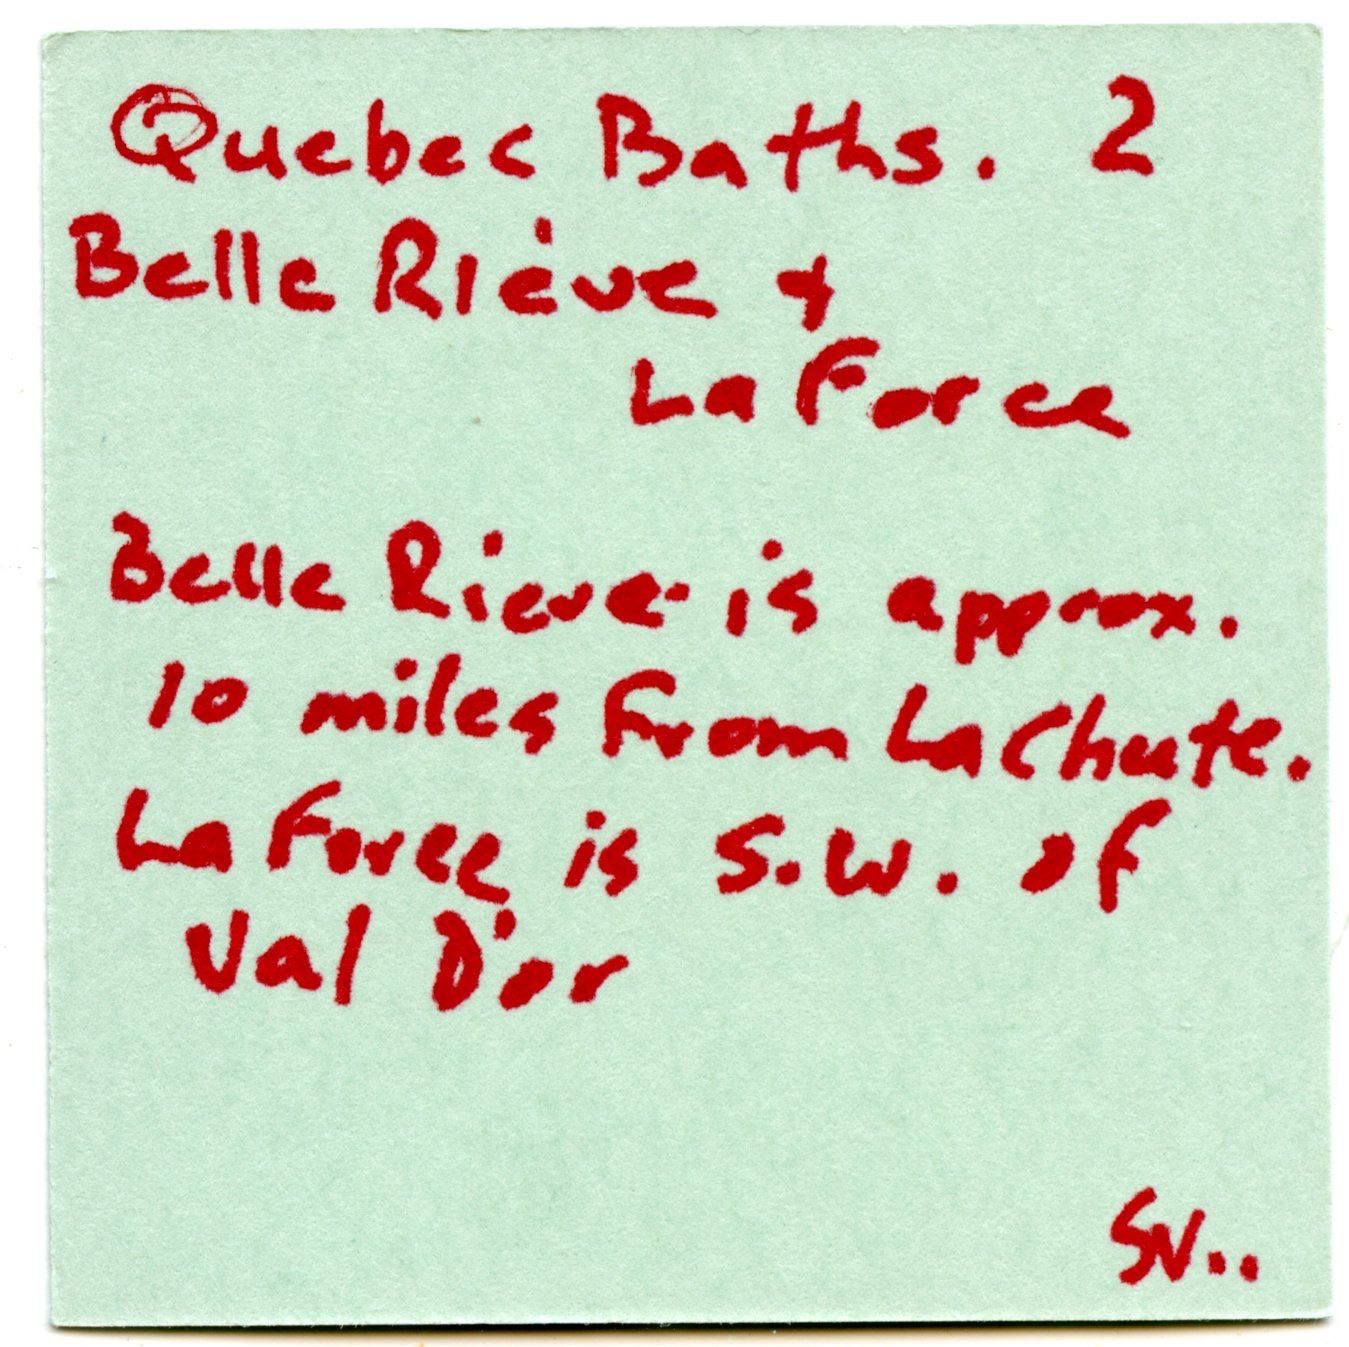 Quebec Baths. 2
Belle Riéve &
La Force
Belle Rieve is approx.
10 miles from La Chute.
La Force is S.W. of
Val D'or
SV..